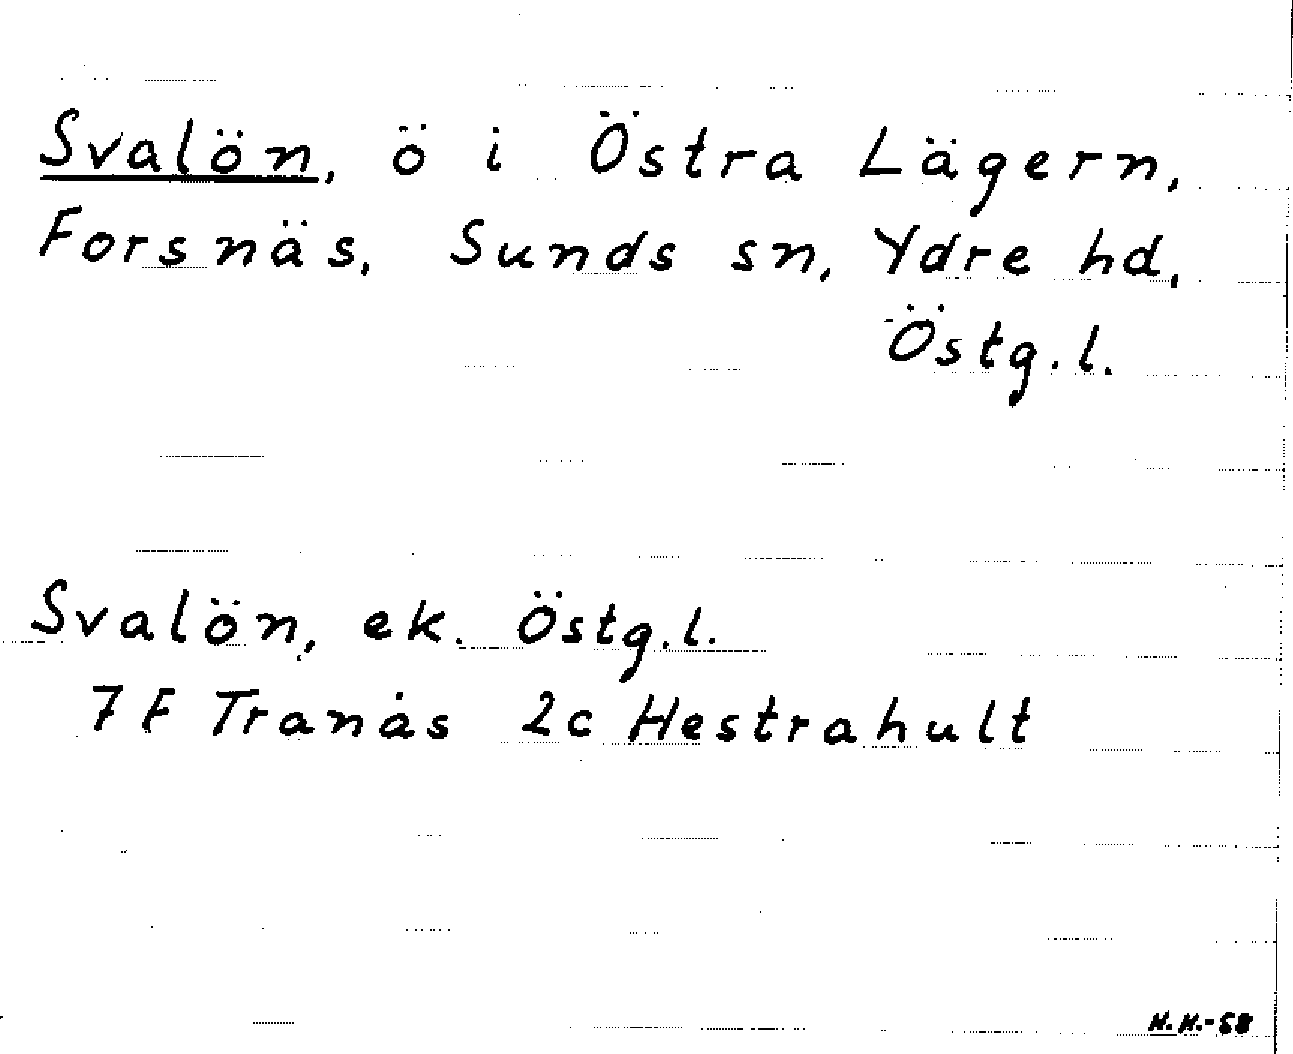 Svalön, ö i Östra Lägern,
Forsnäs, Sunds sn, Ydre hd,
Östg.l.
Svalön, ek. Östg.l.
7F Tranås 2c Hestrahult